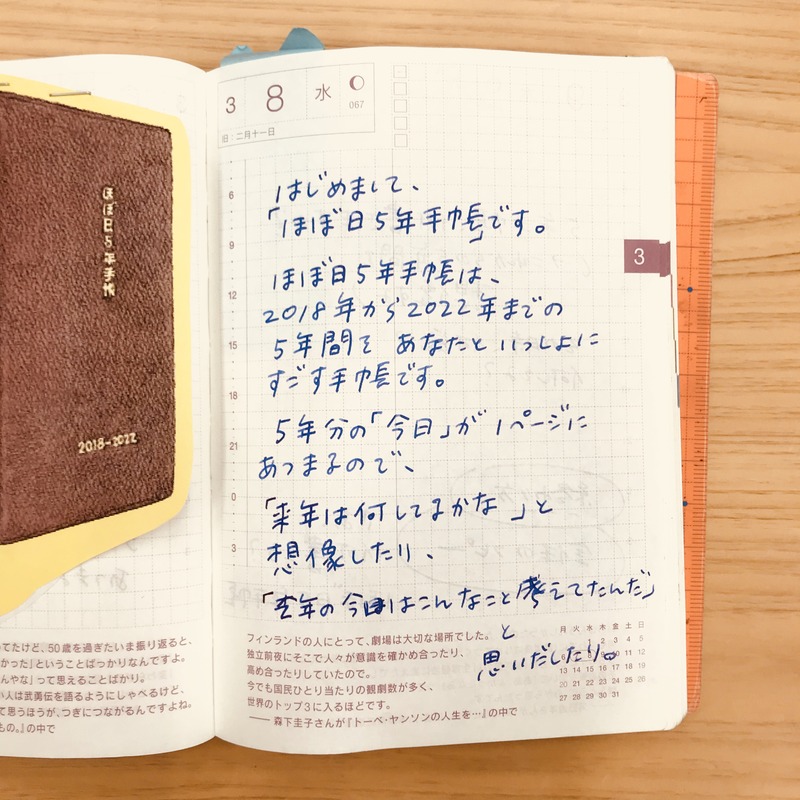 ほぼ日5年手帳
2018-2022
ってたけど、50歳を過ぎたいま振り返ると、
かった」ということばっかりなんですよ。
んやな」って思えることばかり。
い人は武勇伝を語るようにしゃべるけど、
て思うほうが、つぎにつながるんですよね。
もの。』の中で
3 8 水
067
旧:二月十一日
6
9
12
15
18
21
0
3
はじめまして、
「ほぼ日5年手帳」です。
ほぼ日5年手帳は、
2018年から2022年までの
5年間を あなたと いっしょに
すごす手帳です。
5年分の「今日」が 1ページに
あつまるので、
「来年は何してるかな 」と
想像したり、
「去年の今日はこんなこと考えてたんだ」
と
思いだしたり。
3
フィンランドの人にとって、劇場は大切な場所でした。
独立前夜にそこで人々が意識を確かめ合ったり、
高め合ったりしていたので。
今でも国民ひとり当たりの観劇数が多く、
世界のトップ3に入るほどです。
―― 森下圭子さんが『トーベ・ヤンソンの人生を…』の中で
月 火 水 木 金 土 日
1 2 3 4 5
6 7 8 9 10 11 12
13 14 15 16 17 18 19
20 21 22 23 24 25 26
27 28 29 30 31